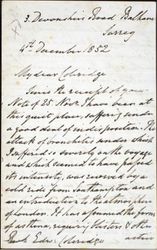 3 Devonshire Road Balham
Surrey
4th December 1852
My dear Coleridge
Since the receipt of your
Note of 25 Novr I have been at
this quiet place, suffering under
a good deal of indisposition. The
attack of bronchitis under which
I suffered so severely on the voyage
and which seemed to have passed
its intensity, was renewed by a
cold ride from Southampton and
an introduction to the atmosphere
of London. It has assumed the form
of asthma, requiring
Coleridge